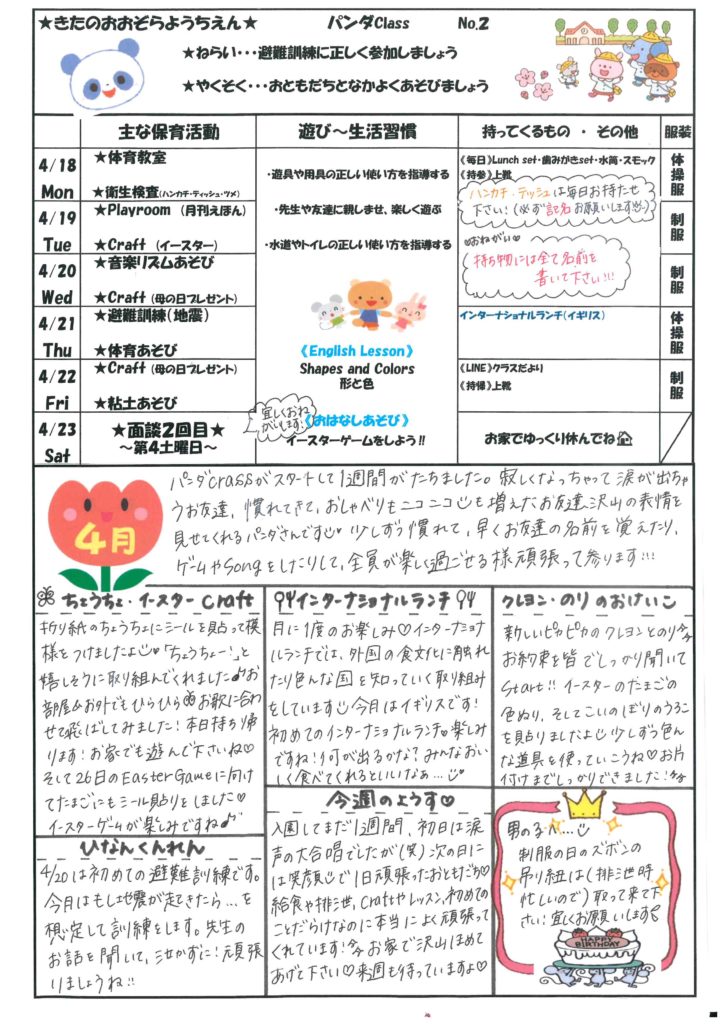 ★きたのおおぞらようちえん★ パンダClass No.2
★ねらい・・・避難訓練に正しく参加しましょう
★やくそく・・・おともだちとなかよくあそびましょう
主な保育活動 遊び～生活習慣 持ってくるもの ・ その他 服装
4/18 Mon
★体育教室
★衛生検査(ハンカチ・ティッシュ・ツメ)
4/19 Tue
★Playroom (月刊えほん)
★Craft (イースター)
4/20 Wed
★音楽リズムあそび
★Craft (母の日プレゼント)
4/21 Thu
★避難訓練(地震)
★体育あそび
4/22 Fri
★Craft (母の日プレゼント)
★粘土あそび
4/23 Sat
★面談2回目★
～第4土曜日～
・遊具や用具の正しい使い方を指導する
・先生や友達に親しませ、楽しく遊ぶ
・水道やトイレの正しい使い方を指導する
《English Lesson》
Shapes and Colors
形と色
宜しくおね
がいします!
《おはなしあそび》
イースターゲームをしよう!!
《毎日》Lunch set・歯みがきset・水筒・スモック
《持参》上靴
ハンカチ・ティッシュは毎日お持たせ
下さい!(必ず記名お願いします)
♡おねがい♡
持ち物には全て名前を
書いて下さい!!!
インターナショナルランチ(イギリス)
《LINE》クラスだより
《持帰》上靴
お家でゆっくり休んでね
体操服
制服
制服
体操服
制服
4月
パンダcrassがスタートして1週間がたちました。寂しくなっちゃって涙が出ちゃ
うお友達、慣れてきて、おしゃべりもニコニコも増えたお友達、沢山の表情を
見せてくれるパンダさんです♡少しずつ慣れて、早くお友達の名前を覚えたり、
ゲームやSongをしたりして、全員が楽しく過ごせる様頑張って参ります!!!
ちょうちょ・イースター Craft
折り紙のちょうちょにシールを貼って模
様をつけましたよ♡「ちょうちょー!」と
嬉しそうに取り組んでくれました♪お
部屋&お外でもひらひらお歌に合わ
せて飛ばしてみました!本日持ち帰
ります!お家でも遊んで下さいね♡
そして26日のEaster Gameに向け
てたまごにもシール貼りをしました♡
イースターゲームが楽しみですね♪
インターナショナルランチ
月に1度のお楽しみ♡インターナショナ
ルランチでは、外国の食文化に触れ
たり色んな国を知っていく取り組み
をしています今月はイギリスです!
初めてのインターナショナルランチ♡楽しみ
ですね!何が出るかな?み～んなおい
しく食べてくれるといいなぁ…♡
クレヨン・のり のおけいこ
新しいピカピカのクレヨンとのり
お約束を皆でしっかり聞いて
Start!! イースターのたまごの
色ぬり、そしてこいのぼりのうろこ
を貼りましたよ少しずつ色ん
な道具を使っていこうね♡お片
付けまでしっかりできました!
ひなんくんれん
4/20は初めての避難訓練です。
今月はもし地震が起きたら…を
想定して訓練をします。先生の
お話を聞いて、泣かずに!頑張
りましょうね!!
今週のようす♡
入園してまだ1週間、初日は涙
声の大合唱でしたが(笑)次の日に
は笑顔で1日頑張ったおともだち♡
給食や排泄、Craftやレッスン、初めての
ことだらけなのに本当によく頑張って
くれています!お家で沢山ほめて
あげて下さい♡来週も待っていますよ♡
男の子へ…
制服の日のズボンの
吊り紐は(排泄時
忙しいので)取って来て下
さい!宜しくお願いします
HAPPY BIRTHDAY